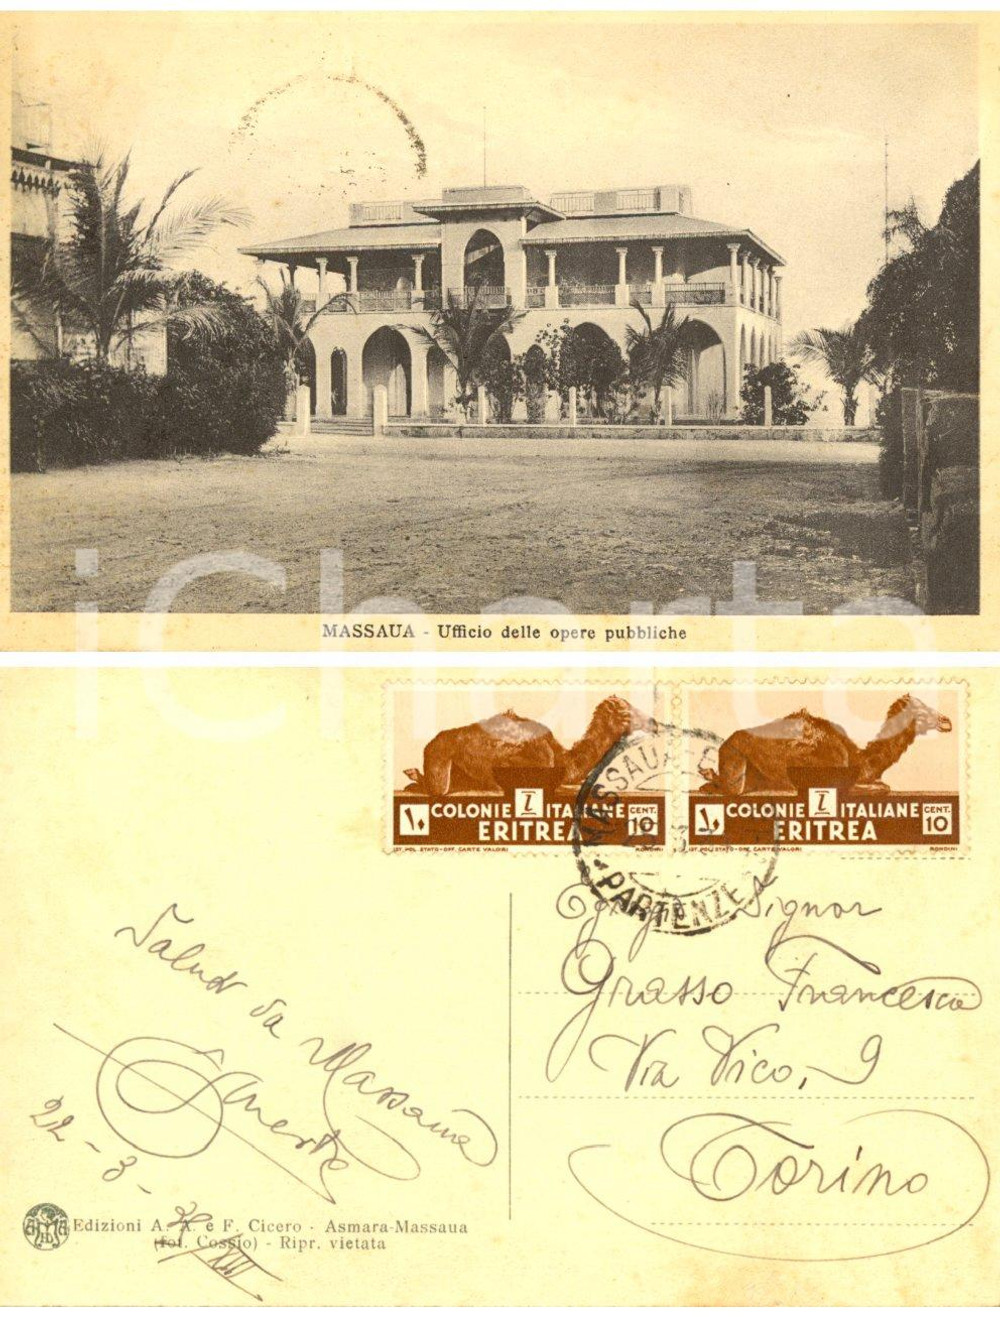 MASSAUA - Ufficio delle opere pubbliche
iCharta
١٠ COLONIE ITALIANE CENT. 10
ERITREA
IST. POL. STATO - OFF. CARTE VALORI MONDINI
١٠ COLONIE ITALIANE CENT. 10
ERITREA
IST. POL. STATO - OFF. CARTE VALORI MONDINI
MASSAUA
PARTENZE
Signor
Grasso Francesco
Via Vico, 9
Torino
Saluti da Massaua
22-3-
XIII
Edizioni A. A. e F. Cicero - Asmara-Massaua
(fot. Cossio) - Ripr. vietata